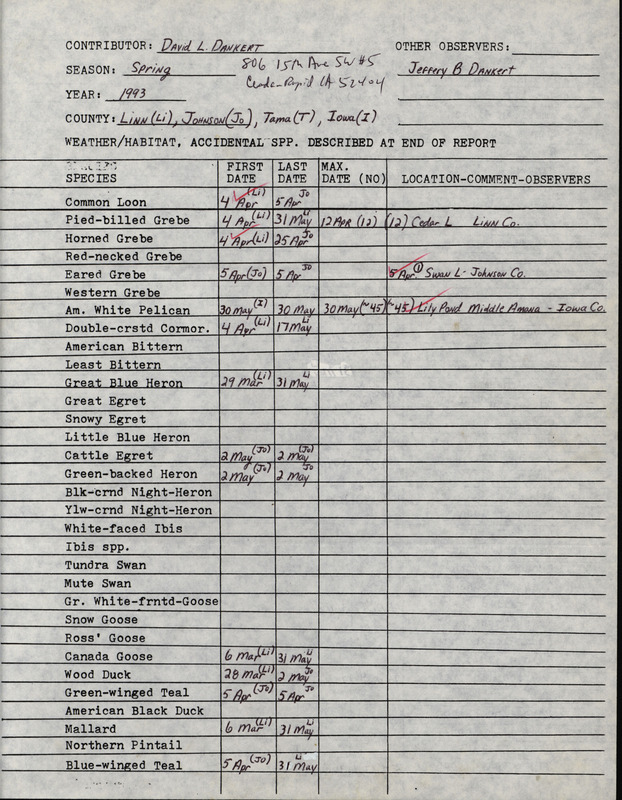 CONTRIBUTOR: David L. Dankert OTHER OBSERVERS:
SEASON: Spring 806 15th Ave SW #5 Jeffery B Dankert
YEAR: 1993 IA 52404
COUNTY: Linn (Li), Johnson (Jo), Tama (T), Iowa (I)
WEATHER/HABITAT, ACCIDENTAL SPP. DESCRIBED AT END OF REPORT
SPECIES FIRST DATE LAST DATE MAX. DATE (NO) LOCATION-COMMENT-OBSERVERS
Common Loon 4 Apr (Li) 5 Apr Jo
Pied-billed Grebe 4 Apr (Li) 31 May Li 12 Apr (12) (12) Cedar L Linn Co.
Horned Grebe 4 Apr (Li) 25 Apr Jo
Red-necked Grebe
Eared Grebe 5 Apr (Jo) 5 Apr Jo 5 Apr (1) Swan L - Johnson Co.
Western Grebe
Am. White Pelican 30 May (I) 30 May 30 May (~45) (~45) Lily Pond Middle Amana - Iowa Co.
Double-crstd Cormor. 4 Apr (Li) 17 May Li
American Bittern
Least Bittern
Great Blue Heron 29 Mar (Li) 31 May Li
Great Egret
Snowy Egret
Little Blue Heron
Cattle Egret 2 May (Jo) 2 May (Jo)
Green-backed Heron 2 May (Jo) 2 May Jo
Blk-crnd Night-Heron
Ylw-crnd Night-Heron
White-faced Ibis
Ibis spp.
Tundra Swan
Mute Swan
Gr. White-frntd-Goose
Snow Goose
Ross' Goose
Canada Goose 6 Mar (Li) 31 May Li
Wood Duck 28 Mar (Li) 2 May Jo
Green-winged Teal 5 Apr (Jo) 5 Apr Jo
American Black Duck
Mallard 6 Mar (Li) 31 May Li
Northern Pintail
Blue-winged Teal 5 Apr (Jo) 31 May Li